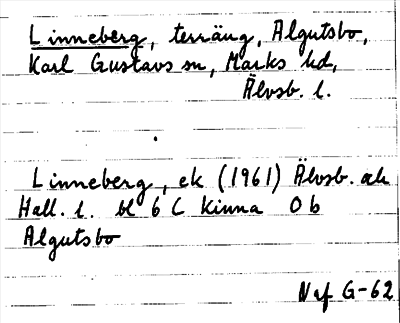 Linneberg, terräng, Algutsbo,
Karl Gustavs sn, Marks hd,
Älvsb. l.
Linneberg, ek (1961) Älvsb. och
Hall. l. bl 6 C Kinna 0 b
Algutsbo
Naf G-62